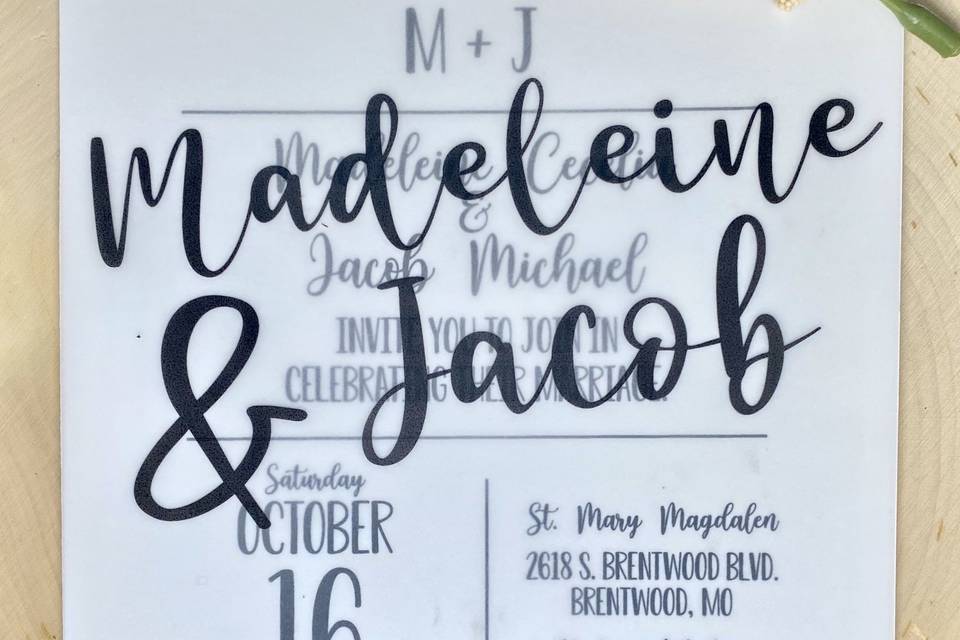 M + J
Madeleine
Madeleine Cecilia
&
Jacob Michael
& Jacob
INVITE YOU TO JOIN IN
CELEBRATING THEIR MARRIAGE.
Saturday
OCTOBER
16
St. Mary Magdalen
2618 S. BRENTWOOD BLVD.
BRENTWOOD, MO